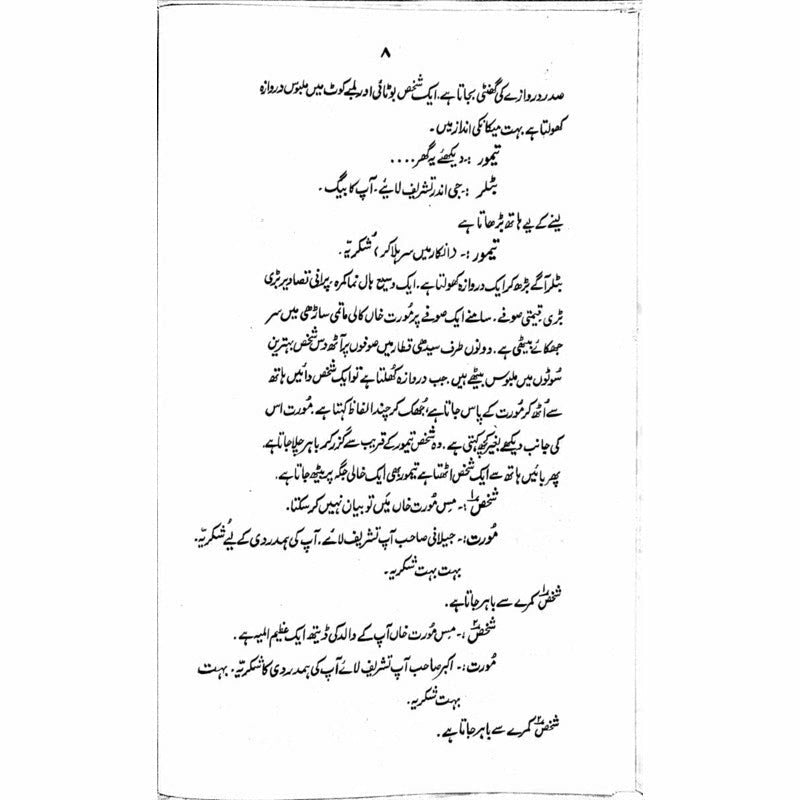 ۸
صدر دروازے کی گھنٹی بجاتا ہے۔ ایک شخص بوٹائی اور لمبے کوٹ میں ملبوس دروازہ
کھولتا ہے بہت میکانکی انداز میں۔
تیمور :۔ دیکھئے یہ گھر ....
بٹلر :۔ جی اندر تشریف لائیے۔ آپ کا بیگ۔
لینے کے لیے ہاتھ بڑھاتا ہے
تیمور :۔ (انکار میں سر ہلا کر) شکریہ۔
بٹلر آگے بڑھ کر ایک دروازہ کھولتا ہے۔ ایک وسیع ہال نما کمرہ۔ پرانی تصاویر بڑی
بڑی قیمتی صوفے۔ سامنے ایک صوفے پر مُورت خاں کالی ماتمی ساڑھی میں سر
جھکائے بیٹھی ہے۔ دونوں طرف سیدھی قطار میں صوفوں پر آٹھ دس شخص بہترین
سُوٹوں میں ملبوس بیٹھے ہیں۔ جب دروازہ کُھلتا ہے تو ایک شخص دائیں ہاتھ
سے اُٹھ کر مُورت کے پاس جاتا ہے، جُھک کر چند الفاظ کہتا ہے۔ مُورت اس
کی جانب دیکھے بغیر کچھ کہتی ہے۔ وہ شخص تیمور کے قریب سے گزر کر باہر چلا جاتا ہے۔
پھر بائیں ہاتھ سے ایک شخص اٹھتا ہے تیمور بھی ایک خالی جگہ پر بیٹھ جاتا ہے۔
شخص ۱ :۔ مِس مُورت خاں میں تو بیان نہیں کر سکتا۔
مُورت :۔ جیلانی صاحب آپ تشریف لائے۔ آپ کی ہمدردی کے لیے شکریہ۔
بہت بہت شکریہ۔
شخص ۱ کمرے سے باہر جاتا ہے۔
شخص ۲ :۔ مِس مُورت خاں آپ کے والد کی ڈیتھ ایک عظیم المیہ ہے۔
مُورت :۔ اکبر صاحب آپ تشریف لائے آپ کی ہمدردی کا شکریہ۔ بہت
بہت شکریہ۔
شخص ۲ کمرے سے باہر جاتا ہے۔